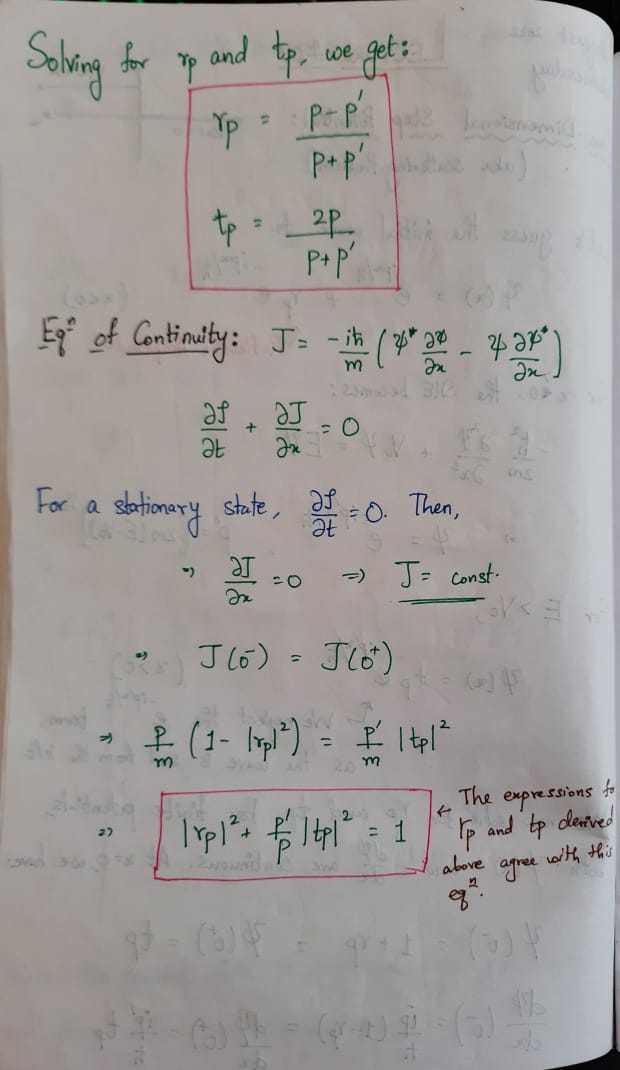 Solving for rp and tp, we get:
rp = (p - p′)/(p + p′)
tp = 2p/(p + p′)
Eqⁿ of Continuity: J = -iħ/m (ψ* ∂ψ/∂x - ψ ∂ψ*/∂x)
∂ρ/∂t + ∂J/∂x = 0
For a stationary state, ∂ρ/∂t = 0. Then,
⇒ ∂J/∂x = 0 ⇒ J = const.
⇒ J(0⁻) = J(0⁺)
⇒ p/m (1 - |rp|²) = p′/m |tp|²
⇒ |rp|² + p′/p |tp|² = 1
← The expressions fo
rp and tp derived
above agree with this
eqⁿ.